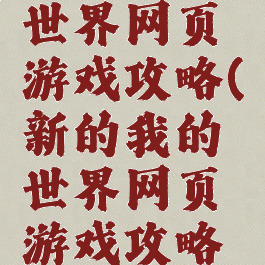 世界网页
游戏攻略(
新的我的
世界网页
游戏攻略